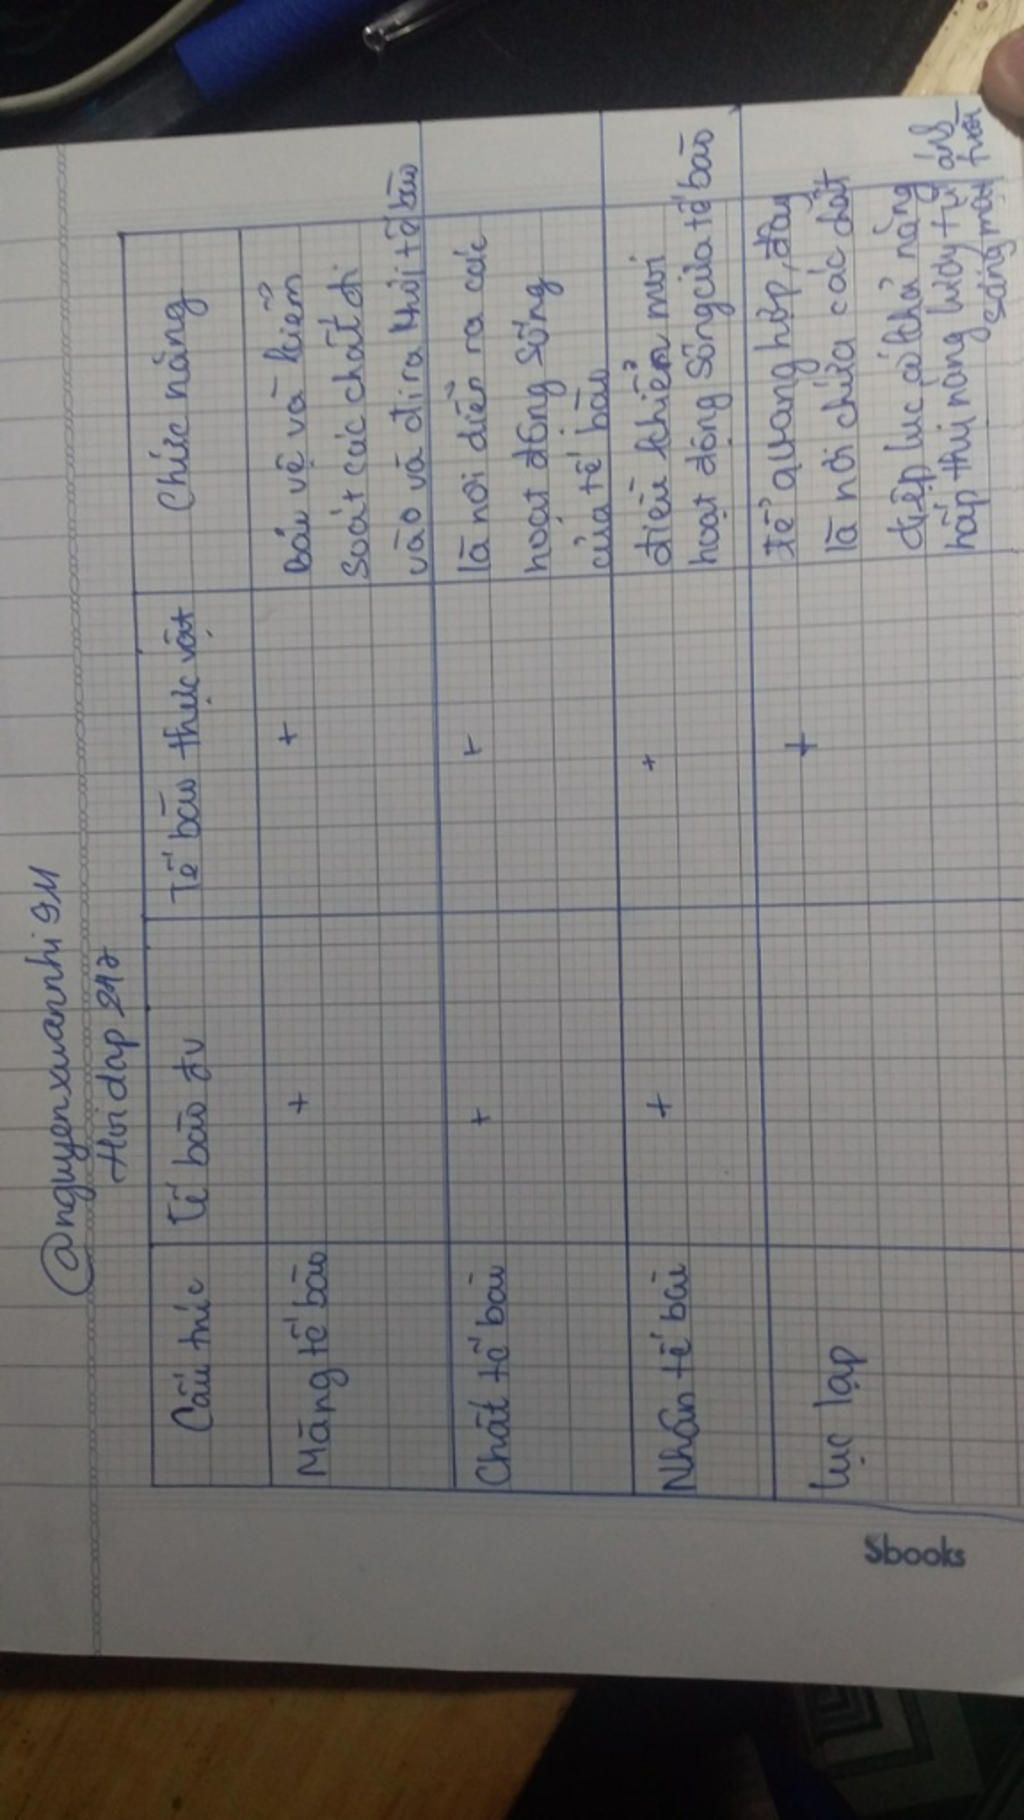 @nguyenxuannhi9M
Hoi dap 247
Cấu trúc
Tế bào đv
Tế bào thực vật
Chức năng
Màng tế bào
+
+
Bảo vệ và kiểm
Soát các chất đi
vào và đi ra khỏi tế bào
Chất tế bào
+
+
là nơi diễn ra các
hoạt động sống
của tế bào
Nhân tế bào
+
+
điều khiển mọi
hoạt động sống của tế bào
lục lạp
+
để quang hợp, đây
là nơi chứa các chất
diệp lục có khả năng
hấp thụ năng lượng từ ánh
sáng mặt trời
Sbooks